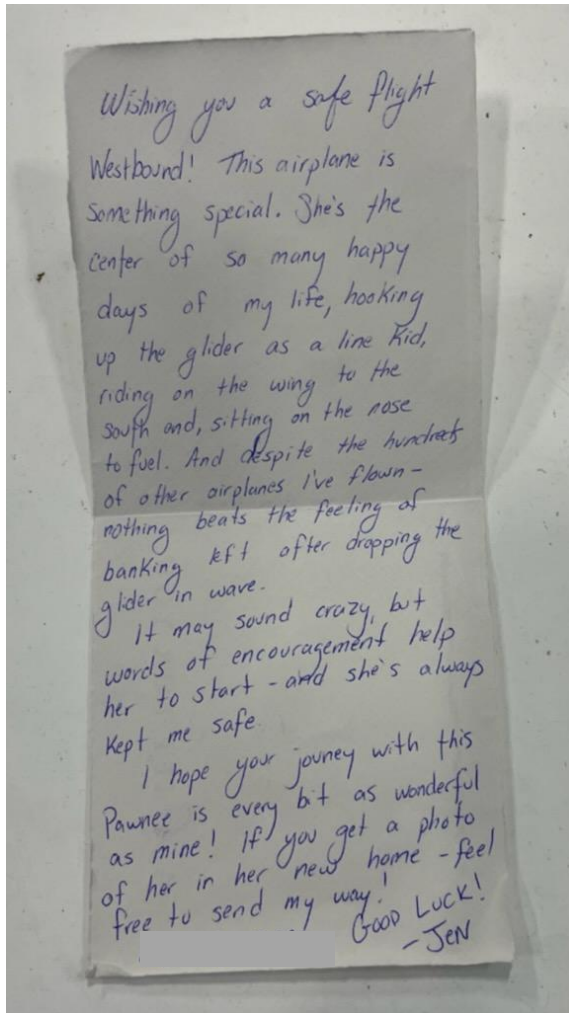 Wishing you a safe flight
Westbound! This airplane is
something special. She's the
center of so many happy
days of my life, hooking
up the glider as a line kid,
riding on the wing to the
south end, sitting on the nose
to fuel. And despite the hundreds
of other airplanes I've flown -
nothing beats the feeling of
banking left after dropping the
glider in wave.
It may sound crazy, but
words of encouragement help
her to start - and she's always
kept me safe.
I hope your jouney with this
Pawnee is every bit as wonderful
as mine! If you get a photo
of her in her new home - feel
free to send my way!
Good Luck!
- Jen